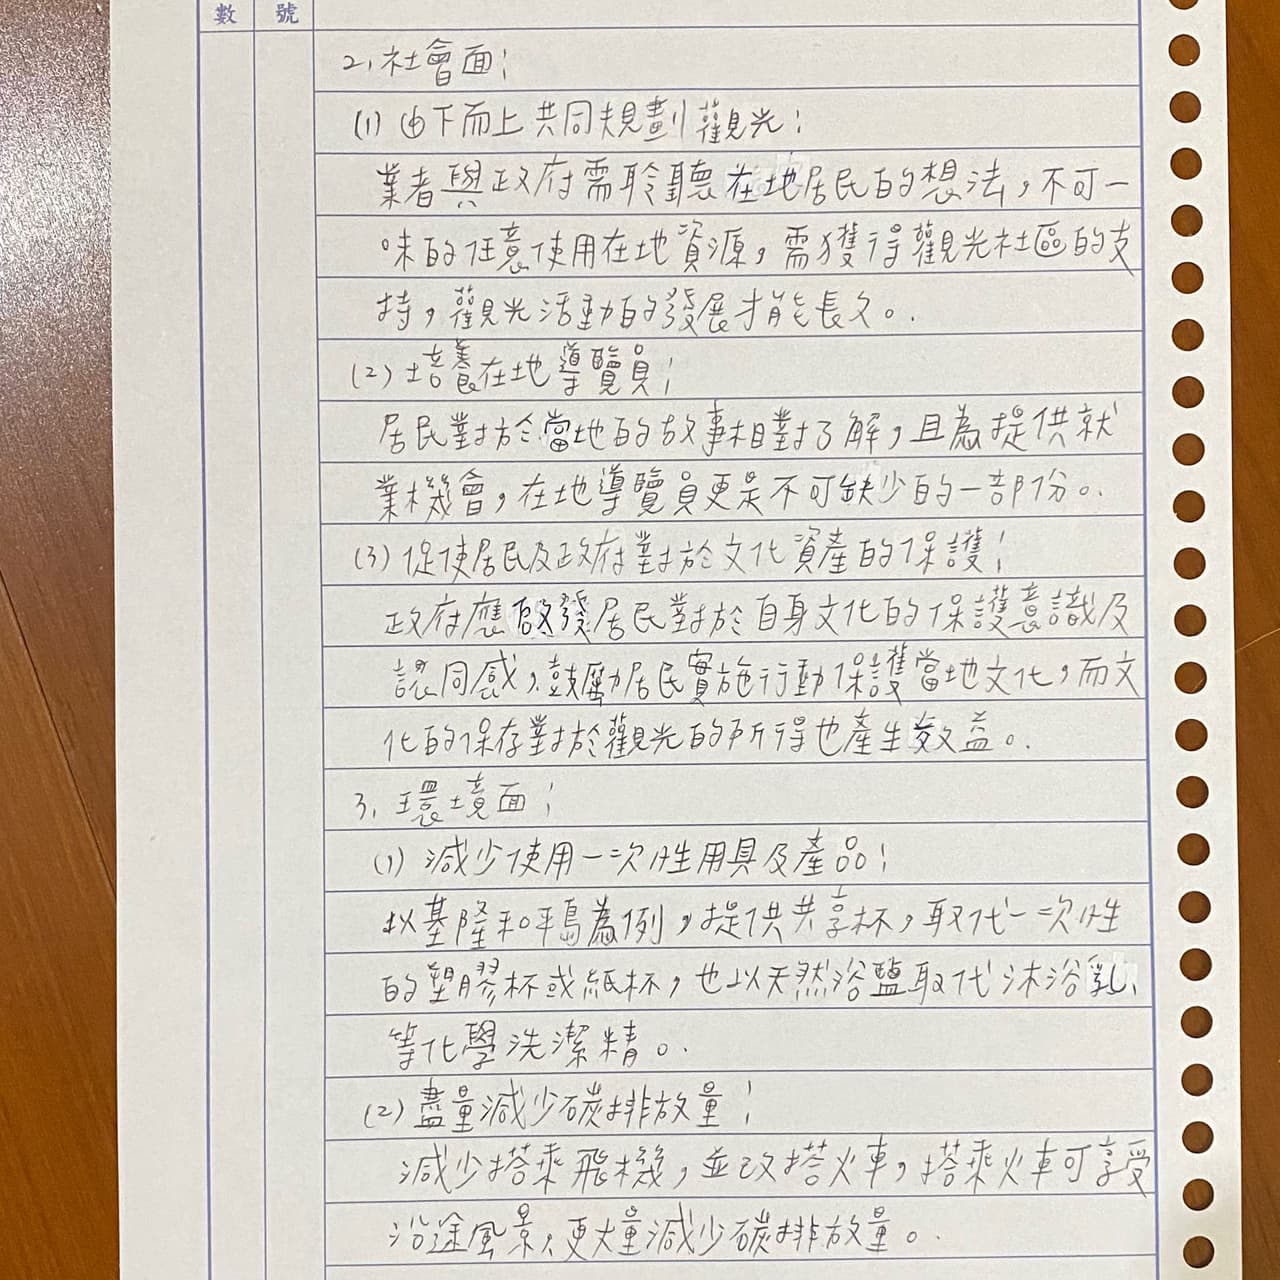 數 號
2. 社會面:
(1) 由下而上共同規劃觀光:
業者與政府需聆聽在地居民的想法,不可一
味的任意使用在地資源,需獲得觀光社區的支
持,觀光活動的發展才能長久。
(2) 培養在地導覽員:
居民對於當地的故事相對了解,且為提供就
業機會,在地導覽員更是不可缺少的一部份。
(3) 促使居民及政府對於文化資產的保護:
政府應啟發居民對於自身文化的保護意識及
認同感,鼓勵居民實施行動保護當地文化,而文
化的保存對於觀光的所得也產生效益。
3. 環境面:
(1) 減少使用一次性用具及產品:
以基隆和平島為例,提供共享杯,取代一次性
的塑膠杯或紙杯,也以天然浴鹽取代沐浴乳、
等化學洗潔精。
(2) 盡量減少碳排放量:
減少搭乘飛機,並改搭火車,搭乘火車可享受
沿途風景,更大量減少碳排放量。